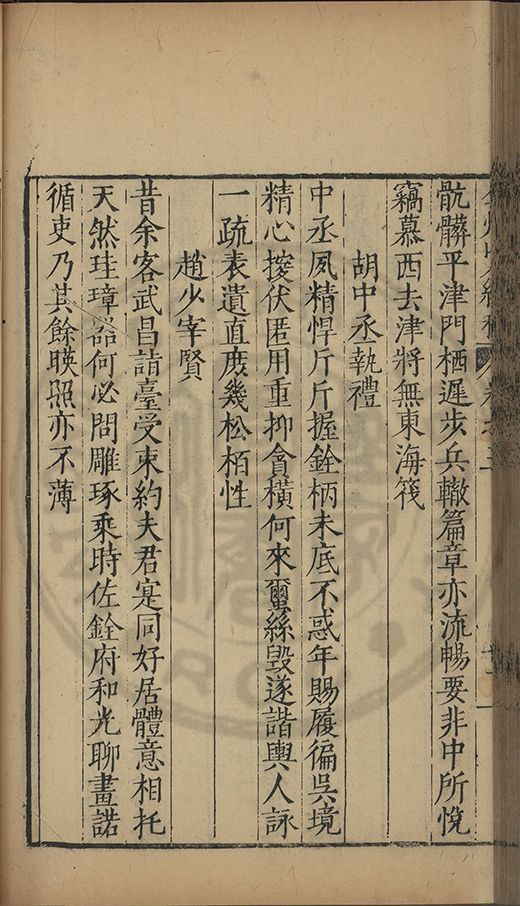 骯髒平津門栖遲步兵轍篇章亦流暢要非中所悅
竊慕西去津將無東海筏
胡中丞執禮
中丞夙精悍斤斤握銓柄未底不惑年賜履徧吳境
精心擿伏匿用重抑貪橫何來蠒絲毀遂諧輿人詠
一疏表遺直庶幾松栢性
趙少宰賢
昔余客武昌詣臺受束約夫君寔同好居體意相托
天然珪璋器何必問雕琢乘時佐銓府和光聊畫諾
循吏乃其餘暎照亦不薄